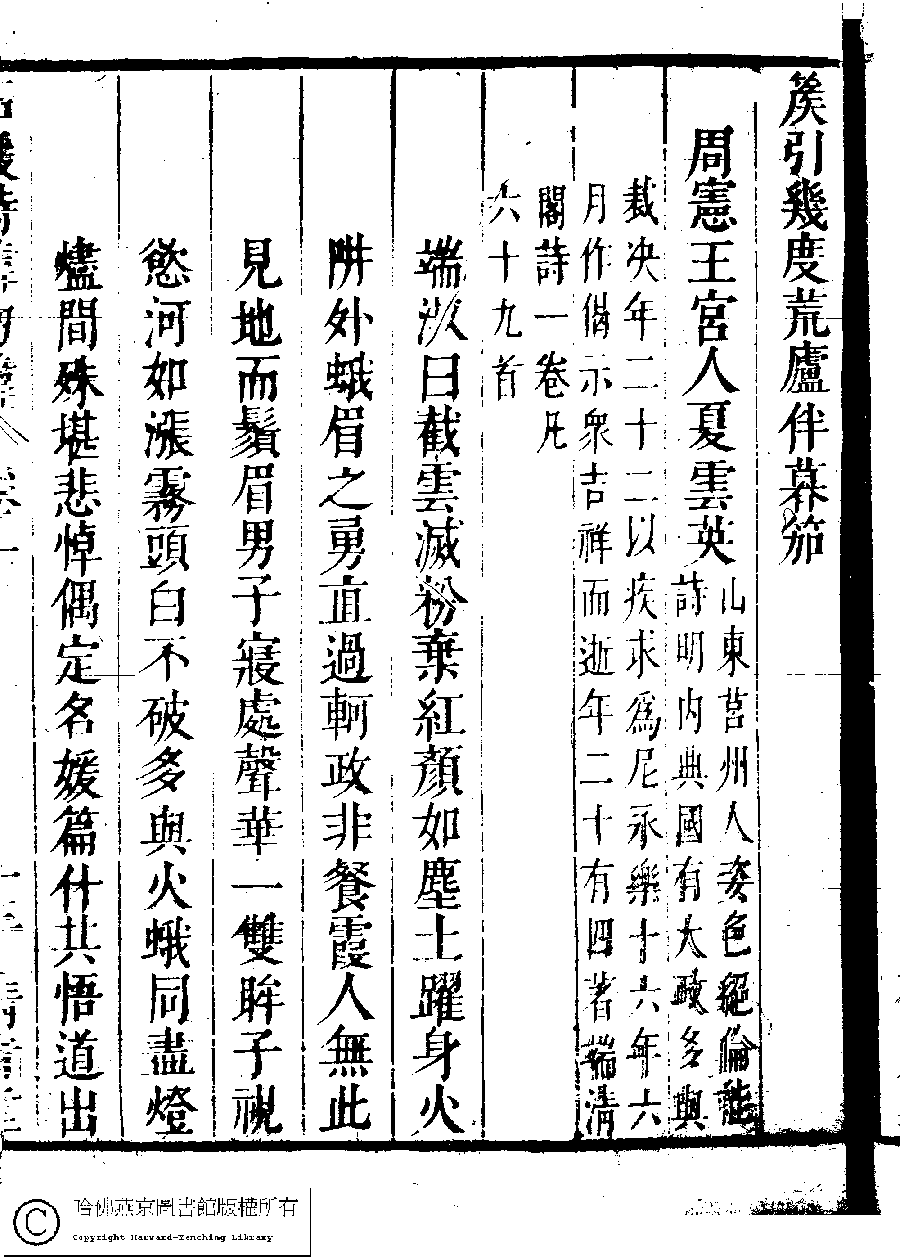 篌引幾度荒廬伴暮笳
周憲王宮人夏雲英
山東莒州人姿色絕倫能
詩明內典國有大政多與
裁决年二十二以疾求爲尼永樂十六年六
月作偈示衆吉祥而逝年二十有四著端清
閣詩一卷凡
六十九首
端淑曰截雲滅粉棄紅顏如塵土躍身火
阱外蛾眉之勇直過軻政非餐霞人無此
見地而鬚眉男子寢處聲華一雙眸子視
慾河如漲霧頭白不破多與火蛾同盡燈
燼間殊堪悲悼偶定名媛篇什共悟道出
哈佛燕京圖書館版權所有
Copyright Harvard-Yenching Library